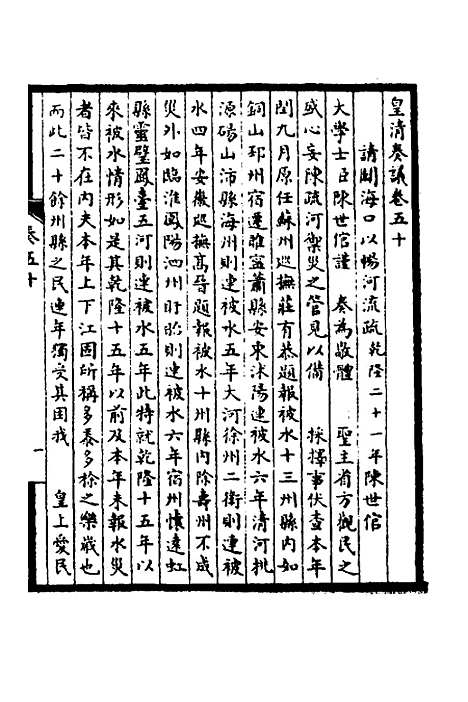 皇清奏議卷五十
請開海口以暢河流疏乾隆二十一年陳世倌
大學士臣陳世倌謹 奏為敬體 聖主省方觀民之
盛心妄陳疏河禦災之管見以備 採擇事伏查本年
閏九月原任蘇州巡撫莊有恭題報被水十三州縣內如
銅山邳州宿遷睢寧蕭縣安東沭陽連被水六年清河桃
源碭山沛縣海州則連被水五年大河徐州二衛則連被
水四年安徽巡撫高晉題報被水十州縣內除壽州不成
災外如臨淮鳳陽泗州盱眙則連被水六年宿州懷遠虹
縣靈璧鳳臺五河則連被水五年此特就乾隆十五年以
來被水情形如是其乾隆十五年以前及本年未報水災
者皆不在內夫本年上下江固所稱多黍多稌之樂歲也
而此二十餘州縣之民連年獨受其困我 皇上愛民
卷五十
一